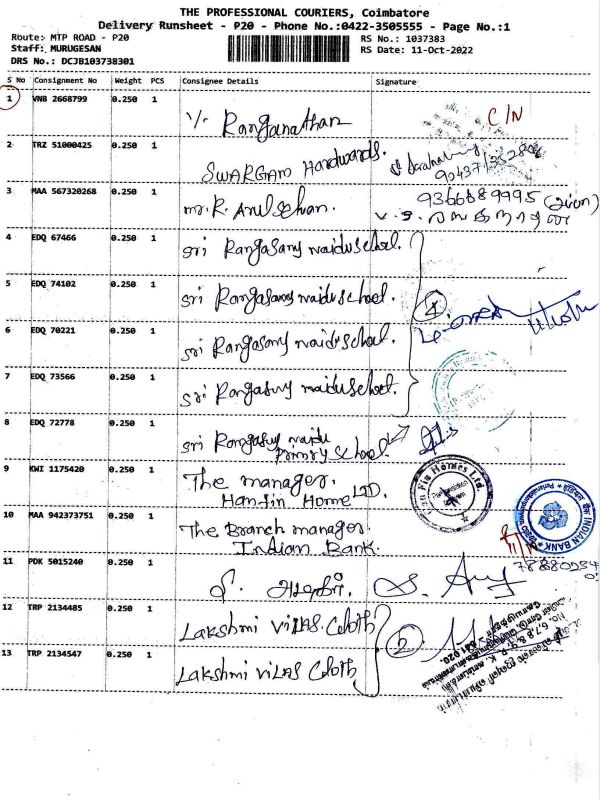 THE PROFESSIONAL COURIERS, Coimbatore
Delivery Runsheet - P20 - Phone No.:0422-3505555 - Page No.:1
Route: MTP ROAD - P20
Staff: MURUGESAN
DRS No.: DCJB103738301
RS No.: 1037383
RS Date: 11-Oct-2022
S No Consignment No Weight PCS Consignee Details Signature
1 VNB 2668799 0.250 1 Ranganathan C/N
2 TRZ 51000425 0.250 1 SWARGAM Hardwards.
3 MAA 567320268 0.250 1 mr. R. Arulselvan. 9366689995
4 EDQ 67466 0.250 1 Sri Rangasamy naidu school.
5 EDQ 74102 0.250 1 Sri Rangasamy naidu school. 4
6 EDQ 70221 0.250 1 Sri Rangasamy naidu school.
7 EDQ 73566 0.250 1 Sri Rangasamy naidu school.
8 EDQ 72778 0.250 1 Sri Rangasamy naidu
Primary school.
9 KWI 1175420 0.250 1 The manager.
Hanfin Home LTD.
10 MAA 942373751 0.250 1 The Branch manager.
Indian Bank.
INDIAN BANK
11 PDK 5015240 0.250 1
12 TRP 2134485 0.250 1 Lakshmi vilas. Cloth 2
13 TRP 2134547 0.250 1 Lakshmi vilas Cloth